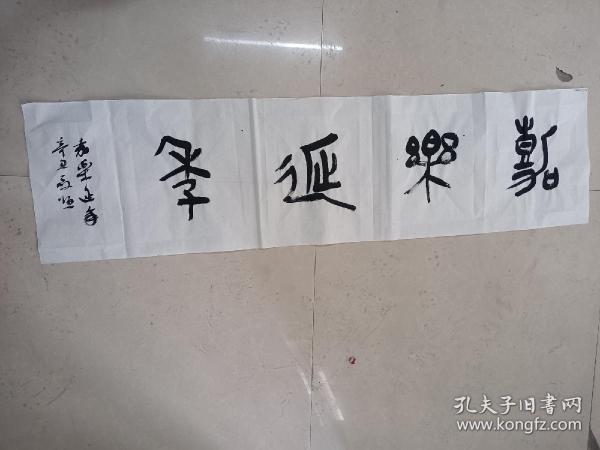 嘉樂延年
嘉樂延年
辛丑
孔夫子旧书网
www.kongfz.com